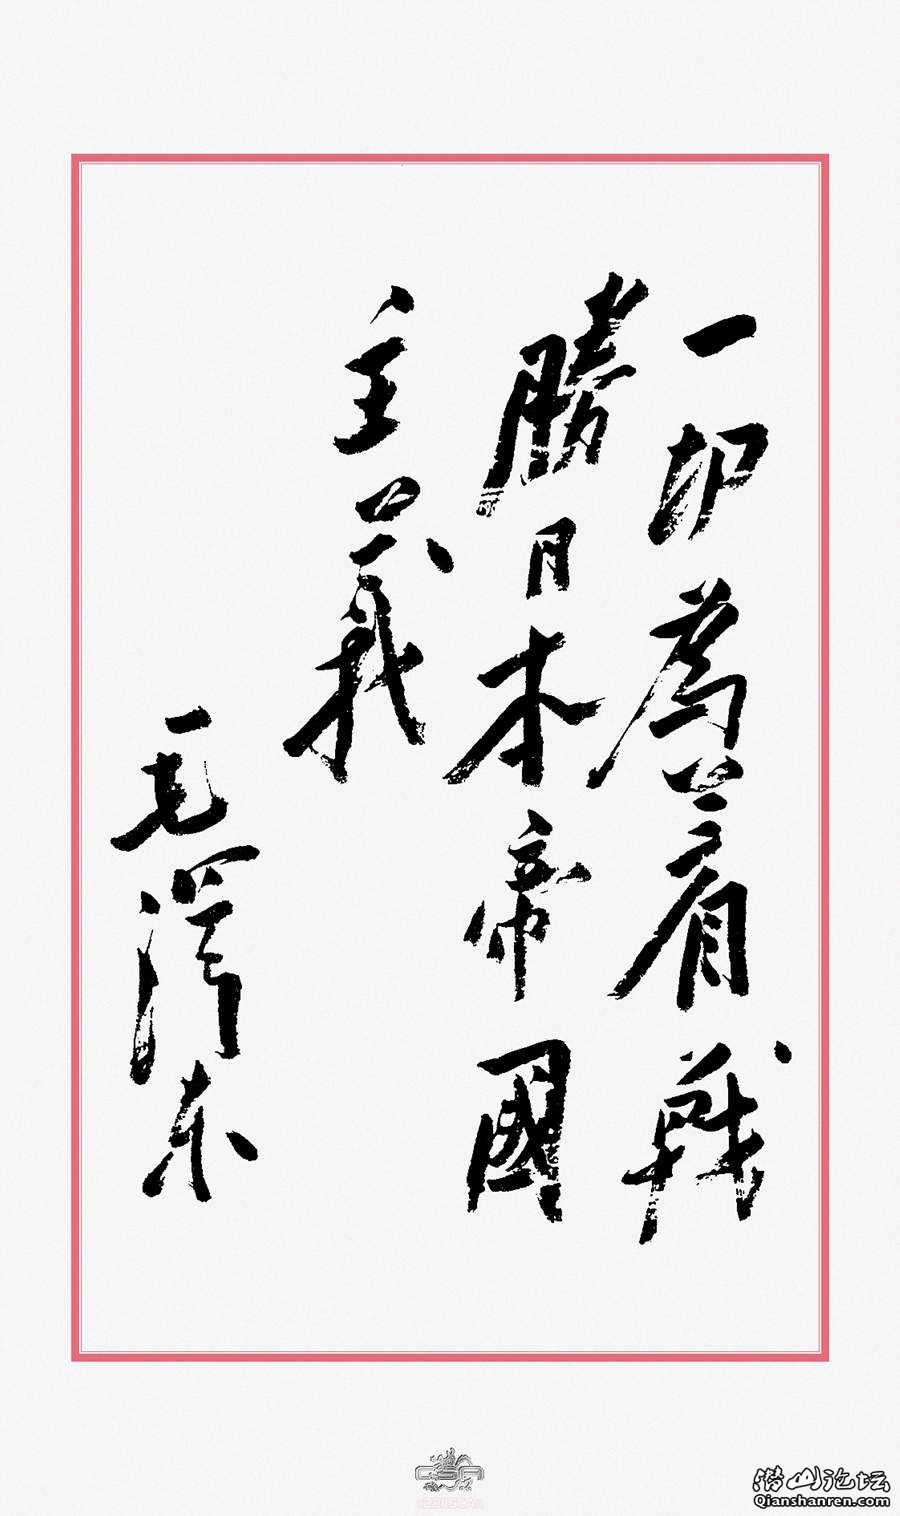 一切爲着戰
勝日本帝國
主義
毛澤東
潜山论坛
Qianshanren.com